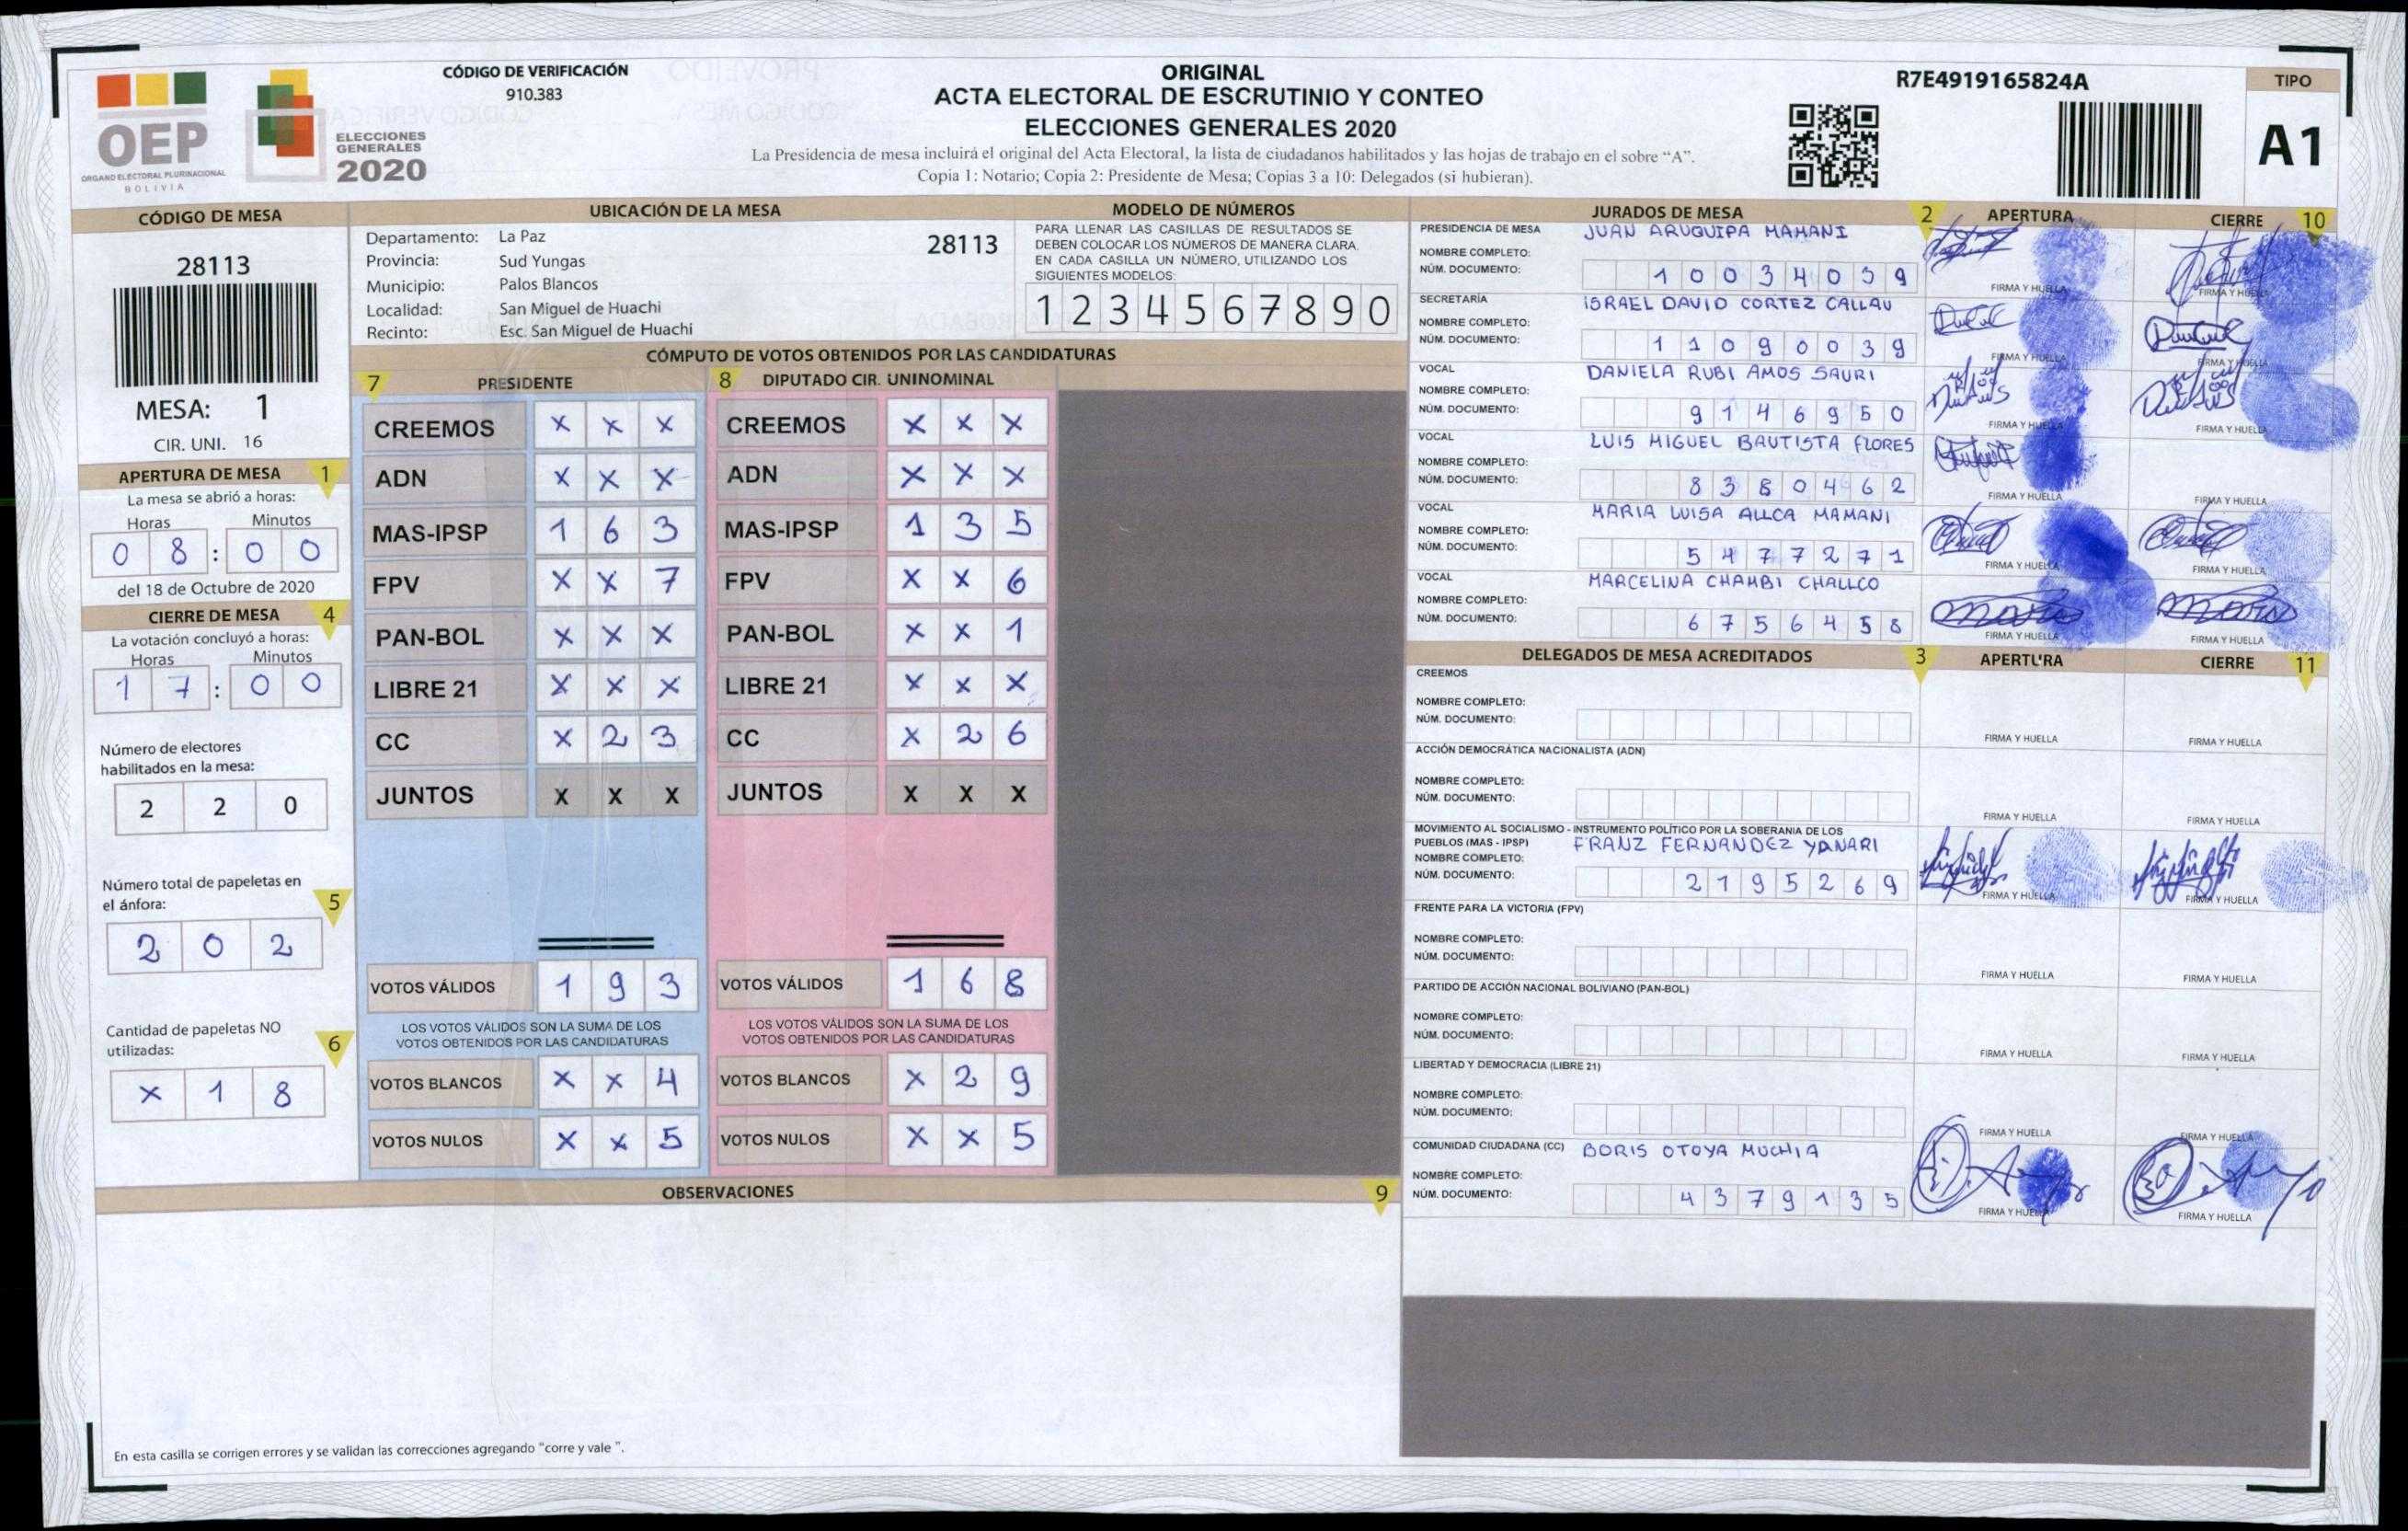 CÓDIGO DE VERIFICACIÓN
910.383
OEP
ÓRGANO ELECTORAL PLURINACIONAL
BOLIVIA
ELECCIONES
GENERALES
2020
ORIGINAL
ACTA ELECTORAL DE ESCRUTINIO Y CONTEO
ELECCIONES GENERALES 2020
La Presidencia de mesa incluirá el original del Acta Electoral, la lista de ciudadanos habilitados y las hojas de trabajo en el sobre "A".
Copia 1: Notario; Copia 2: Presidente de Mesa; Copias 3 a 10: Delegados (si hubieran).
R7E4919165824A
TIPO
A1
CÓDIGO DE MESA
28113
MESA: 1
CIR. UNI. 16
APERTURA DE MESA 1
La mesa se abrió a horas:
Horas Minutos
0 8 : 0 0
del 18 de Octubre de 2020
CIERRE DE MESA 4
La votación concluyó a horas:
Horas Minutos
1 7 : 0 0
Número de electores
habilitados en la mesa:
2 2 0
Número total de papeletas en
el ánfora: 5
2 0 2
Cantidad de papeletas NO
utilizadas: 6
X 1 8
UBICACIÓN DE LA MESA
Departamento: La Paz
28113
Provincia: Sud Yungas
Municipio: Palos Blancos
Localidad: San Miguel de Huachi
Recinto: Esc. San Miguel de Huachi
MODELO DE NÚMEROS
PARA LLENAR LAS CASILLAS DE RESULTADOS SE
DEBEN COLOCAR LOS NÚMEROS DE MANERA CLARA.
EN CADA CASILLA UN NÚMERO, UTILIZANDO LOS
SIGUIENTES MODELOS:
1 2 3 4 5 6 7 8 9 0
CÓMPUTO DE VOTOS OBTENIDOS POR LAS CANDIDATURAS
7 PRESIDENTE
CREEMOS X X X
ADN X X X
MAS-IPSP 1 6 3
FPV X X 7
PAN-BOL X X X
LIBRE 21 X X X
CC X 2 3
JUNTOS X X X
VOTOS VÁLIDOS 1 9 3
LOS VOTOS VÁLIDOS SON LA SUMA DE LOS
VOTOS OBTENIDOS POR LAS CANDIDATURAS
VOTOS BLANCOS X X 4
VOTOS NULOS X X 5
8 DIPUTADO CIR. UNINOMINAL
CREEMOS X X X
ADN X X X
MAS-IPSP 1 3 5
FPV X X 6
PAN-BOL X X 1
LIBRE 21 X X X
CC X 2 6
JUNTOS X X X
VOTOS VÁLIDOS 1 6 8
LOS VOTOS VÁLIDOS SON LA SUMA DE LOS
VOTOS OBTENIDOS POR LAS CANDIDATURAS
VOTOS BLANCOS X 2 9
VOTOS NULOS X X 5
OBSERVACIONES 9
En esta casilla se corrigen errores y se validan las correcciones agregando "corre y vale ".
JURADOS DE MESA 2 APERTURA CIERRE 10
PRESIDENCIA DE MESA JUAN ARUQUIPA MAMANI
NOMBRE COMPLETO:
NÚM. DOCUMENTO: 1 0 0 3 4 0 3 9
FIRMA Y HUELLA FIRMA Y HUELLA
SECRETARÍA ISRAEL DAVID CORTEZ CALLAU
NOMBRE COMPLETO:
NÚM. DOCUMENTO: 1 1 0 9 0 0 3 9
FIRMA Y HUELLA FIRMA Y HUELLA
VOCAL DANIELA RUBI AMOS SAURI
NOMBRE COMPLETO:
NÚM. DOCUMENTO: 9 1 4 6 9 5 0
FIRMA Y HUELLA FIRMA Y HUELLA
VOCAL LUIS MIGUEL BAUTISTA FLORES
NOMBRE COMPLETO:
NÚM. DOCUMENTO: 8 3 8 0 4 6 2
FIRMA Y HUELLA FIRMA Y HUELLA
VOCAL MARIA LUISA ALLCA MAMANI
NOMBRE COMPLETO:
NÚM. DOCUMENTO: 5 4 7 7 2 7 1
FIRMA Y HUELLA FIRMA Y HUELLA
VOCAL MARCELINA CHAMBI CHALLCO
NOMBRE COMPLETO:
NÚM. DOCUMENTO: 6 7 5 6 4 5 8
FIRMA Y HUELLA FIRMA Y HUELLA
DELEGADOS DE MESA ACREDITADOS 3 APERTURA CIERRE 11
CREEMOS
NOMBRE COMPLETO:
NÚM. DOCUMENTO:
FIRMA Y HUELLA FIRMA Y HUELLA
ACCIÓN DEMOCRÁTICA NACIONALISTA (ADN)
NOMBRE COMPLETO:
NÚM. DOCUMENTO:
FIRMA Y HUELLA FIRMA Y HUELLA
MOVIMIENTO AL SOCIALISMO - INSTRUMENTO POLÍTICO POR LA SOBERANIA DE LOS
PUEBLOS (MAS - IPSP) FRANZ FERNANDEZ YANARI
NOMBRE COMPLETO:
NÚM. DOCUMENTO: 2 1 9 5 2 6 9
FIRMA Y HUELLA FIRMA Y HUELLA
FRENTE PARA LA VICTORIA (FPV)
NOMBRE COMPLETO:
NÚM. DOCUMENTO:
FIRMA Y HUELLA FIRMA Y HUELLA
PARTIDO DE ACCIÓN NACIONAL BOLIVIANO (PAN-BOL)
NOMBRE COMPLETO:
NÚM. DOCUMENTO:
FIRMA Y HUELLA FIRMA Y HUELLA
LIBERTAD Y DEMOCRACIA (LIBRE 21)
NOMBRE COMPLETO:
NÚM. DOCUMENTO:
FIRMA Y HUELLA FIRMA Y HUELLA
COMUNIDAD CIUDADANA (CC) BORIS OTOYA MUCHIA
NOMBRE COMPLETO:
NÚM. DOCUMENTO: 4 3 7 9 1 3 5
FIRMA Y HUELLA FIRMA Y HUELLA